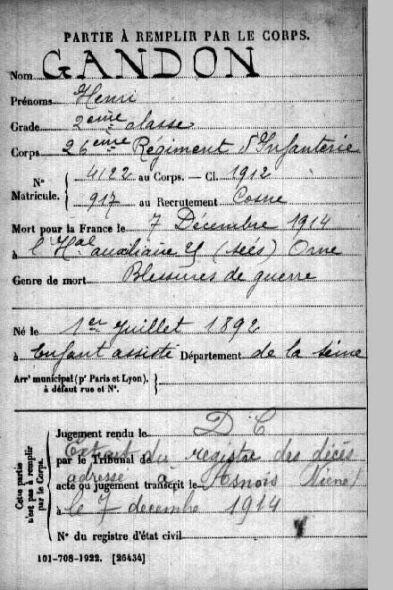 PARTIE À REMPLIR PAR LE CORPS.
Nom GANDON
Prénoms Henri
Grade 2ème classe
Corps 26ème Régiment d'Infanterie
N° Matricule. { 4122 au Corps. — Cl. 1912
917 au Recrutement Cosne
Mort pour la France le 7 Décembre 1914
à l'Hal auxiliaire (Sées) Orne
Genre de mort Blessures de guerre
Né le 1er Juillet 1892
à Enfant assisté Département de la Seine
Arrt municipal (pr Paris et Lyon), à défaut rue et N°. }
Cette partie n'est pas à remplir par le Corps.
Jugement rendu le D C
par le Tribunal de Extrait du registre des décès
acte ou jugement transcrit le adressé à Asnois
à le 7 decembre 1914
N° du registre d'état civil
101-708-1922. [26434]